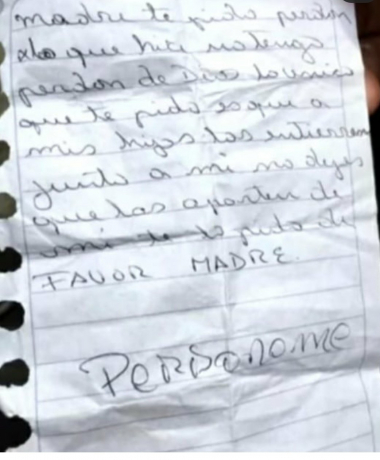 madre te pido perdon
alo que hice notengo
perdon de Dios lo unico
que te pido es que a
mis hijos los entierren
junto a mi no dejes
que los aparten de
mi te lo pido de
FAVOR MADRE.
PERDONOME